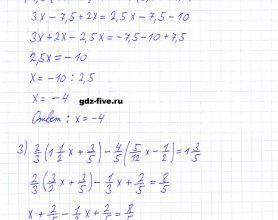 3x - 7,5 + 2x = 2,5x - 7,5 - 10
3x + 2x - 2,5x = -7,5 - 10 + 7,5
2,5x = -10
x = -10 : 2,5
x = -4
gdz-five.ru
Ответ: x = -4
3) 2/3 (1 1/2 x + 3/5) - 4/5 (5/12 x - 1/2) = 1 3/5
2/3 (3/2 x + 3/5) - 1/3 x + 2/5 = 8/5
x + 2/5 - 1/3 x + 2/5 = 8/5